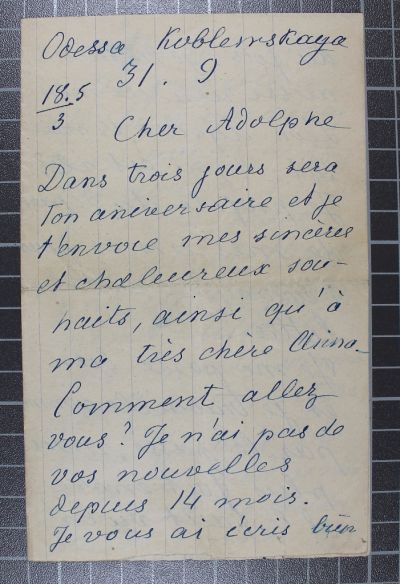 Odessa Koblewskaya
31. 9
18.5
3
Cher Adolphe
Dans trois jours sera
Ton aniversaire et je
t'envoie mes sincères
et chaleureux sou-
haits, ainsi qu'à
ma très chère Anna.
Comment allez
vous? Je n'ai pas de
vos nouvelles
depuis 14 mois.
Je vous ai écris bien